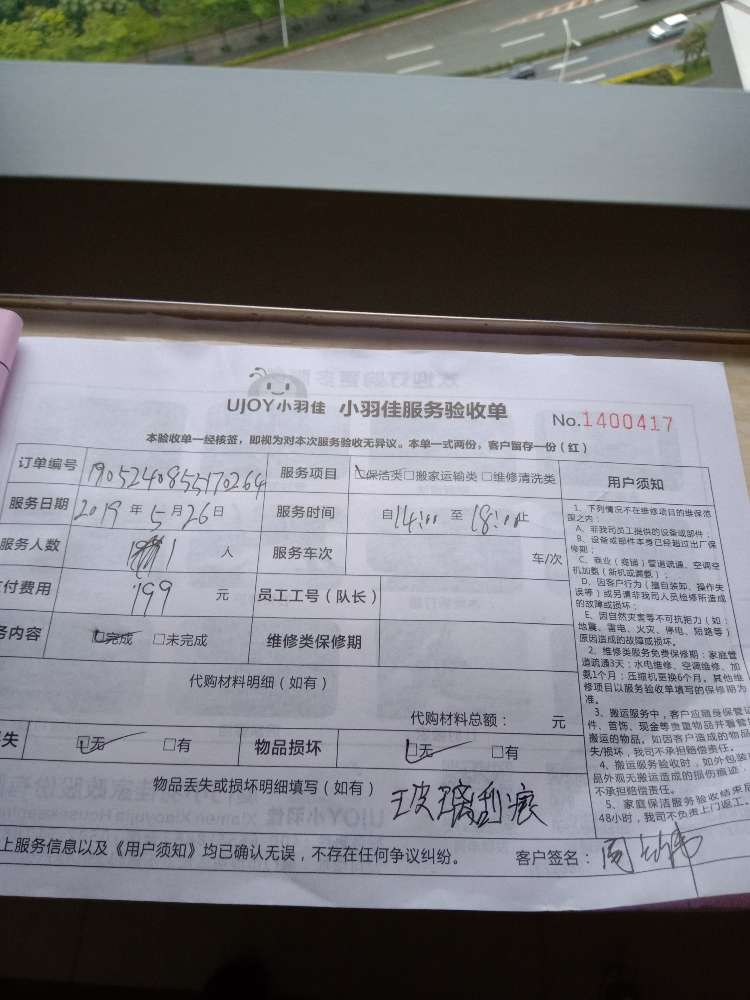 UJOY小羽佳 小羽佳服务验收单
No.1400417
本验收单一经核签，即视为对本次服务验收无异议。本单一式两份，客户留存一份（红）
订单编号 190524085517 0264 服务项目 保洁类 □搬家运输类 □维修清洗类
服务日期 2019 年 5 月 26 日 服务时间 自 14:00 至 18:00 止
服务人数 1 人 服务车次 车/次
付费用 199 元 员工工号（队长）
务内容 □完成 □未完成 维修类保修期
代购材料明细（如有）
代购材料总额： 元
失 □无 □有 物品损坏 □无 □有
物品丢失或损坏明细填写（如有）
玻璃刮痕
上服务信息以及《用户须知》均已确认无误，不存在任何争议纠纷。 客户签名：
用户须知
1、下列情况不在维修项目的维保范
围之内：
A、非我司员工提供的设备或部件；
B、设备或部件本身已经超过出厂保
修期；
C、商业（烟道）管道疏通、空调空
机加氨（新机或漏氨）；
D、因客户行为（擅自装卸、操作失
误等）或另请非我司人员检修所造成
的故障或损坏；
E、因自然灾害等不可抗拒力（如：
地震、雷电、火灾、停电、短路等）
原因造成的故障或损坏。
2、维修类服务免费保修期：家庭管
道疏通3天；水电维修、空调维修、加
氨1个月；压缩机更换6个月。其他维
修项目以服务验收单填写的保修期为
准。
3、搬运服务中，客户应随身保管证
件、首饰、现金等贵重物品并看管
搬运的物品。如因客户造成的物品
失/损坏，我司不承担赔偿责任。
4、搬运服务验收时，如外包装
品外观无搬运造成的损伤痕迹，
不承担赔偿责任。
5、家庭保洁服务验收结束后
48小时，我司不负责上门返工。